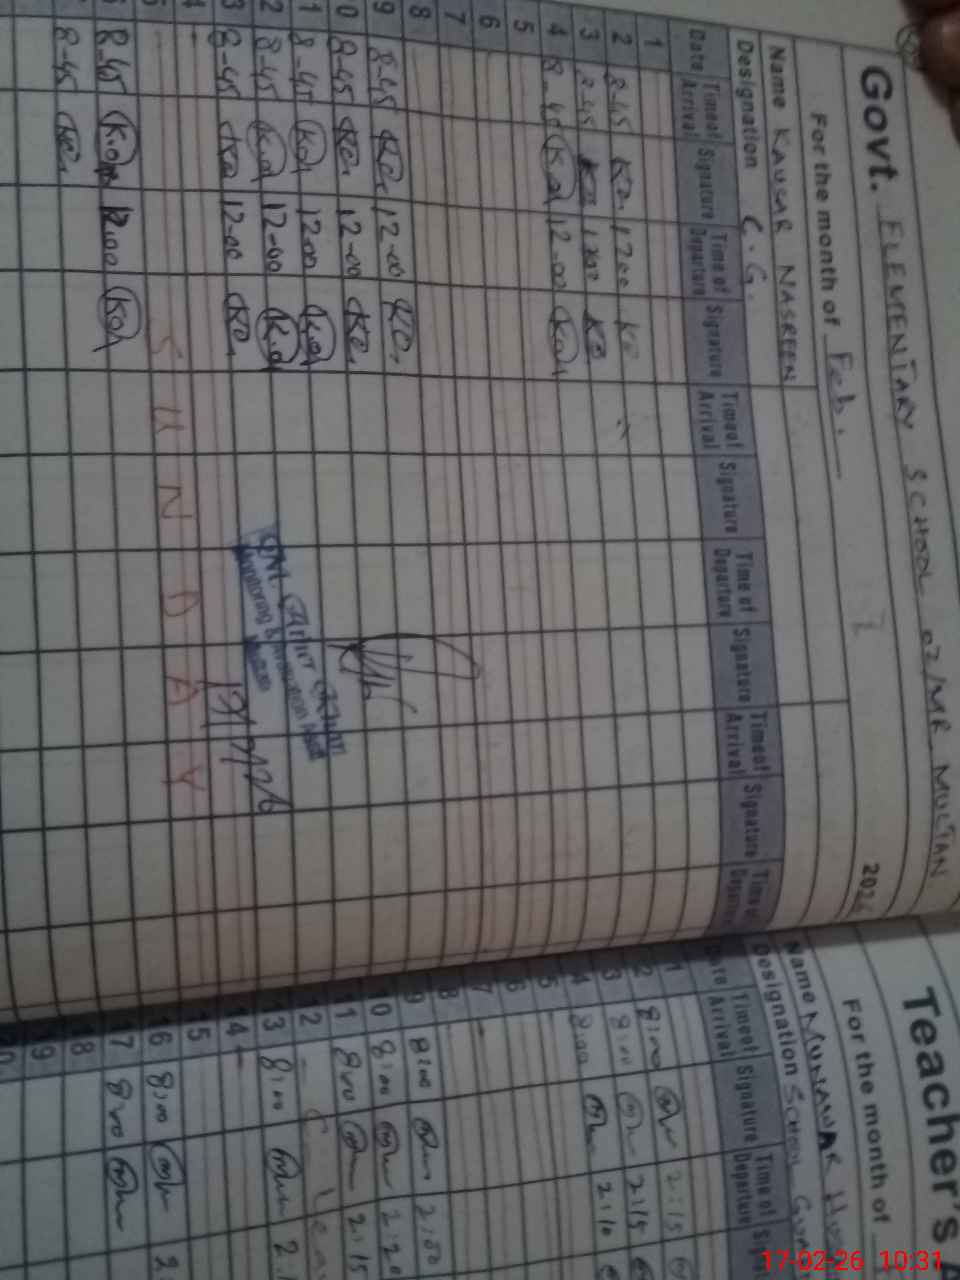 Govt. ELEMENTARY SCHOOL 07/MR MULTAN.
For the month of Feb. 2026
Name KAUSAR NASREEN
Designation C.G.
Date Time of Arrival Signature Time of Departure Signature Time of Arrival Signature Time of Departure Signature Time of Arrival Signature Time of Departure
1
2 8-45 KO. 1200 KO
3 8-45 KO 1200 KO
4 8-40 KO 12-00 KO
5
6
7
8
9 8-45 KO. 12-00 KO.
10 8-45 KO. 12-00 KO.
11 8-45 KO 1200 KO
12 8-45 K.O 12-00 K.O
13 8-45 KO 12-00 KO.
SUNDAY
8-45 K.O 12.00 KO
8-45 KO.
Monitoring & Evaluation
Teacher's
For the month of
Name MUNAWAR
Designation SCHOOL
Date Time of Arrival Signature Time of Departure
1
2 8:00 2:15
3 8:00 2:15
4 8:00 2:10
5
6
7
8
9 8:00 2:00
10 8:00 2:20
11 8:00 2:15
12
13 8:00
14
15
16 8:00
17 8:00
18
19
20
17-02-26 10:31